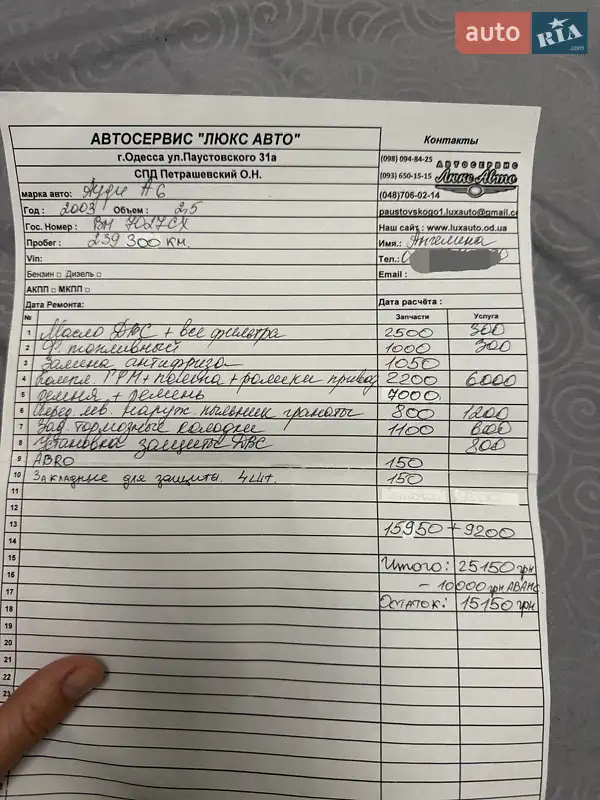 auto RIA .com
АВТОСЕРВИС "ЛЮКС АВТО"
Контакты
г.Одесса ул.Паустовского 31а
(098) 094-84-25
СПД Петрашевский О.Н.
(093) 650-15-15
АВТОСЕРВИС
Люкс Авто
марка авто: Ауди А6
(048)706-02-14
Год : 2003 Объем : 2,5
paustovskogo1.luxauto@gmail.c
Гос. Номер : ВН 7027СХ
Наш сайт : www.luxauto.od.ua
Пробег : 239 300 км.
Имя.: Ангелина
Vin:
Тел.:
Бензин □ Дизель □
Email :
АКПП □ МКПП □
Дата Ремонта:
Дата расчёта :
№ Запчасти Услуга
1 Масло ДВС + все фильтра 2500 300
2 Ф. топливный 1000 300
3 Замена антифриза 1050
4 Компл. ГРМ + помпа + ролики привод 2200 6000
5 ремня + ремень 7000
6 Перед. лев. наруж пыльник гранаты 800 1200
7 Зад тормозные колодки 1100 600
8 Установка защиты ДВС 800
9 ABRO 150
10 Закладные для защиты. 4шт. 150
11
12
13 15950 + 9200
14
15 Итого: 25150 грн
16 - 10000 грн АВАНС
17 ОСТАТОК: 15150 грн
18
19
20
21
22
23